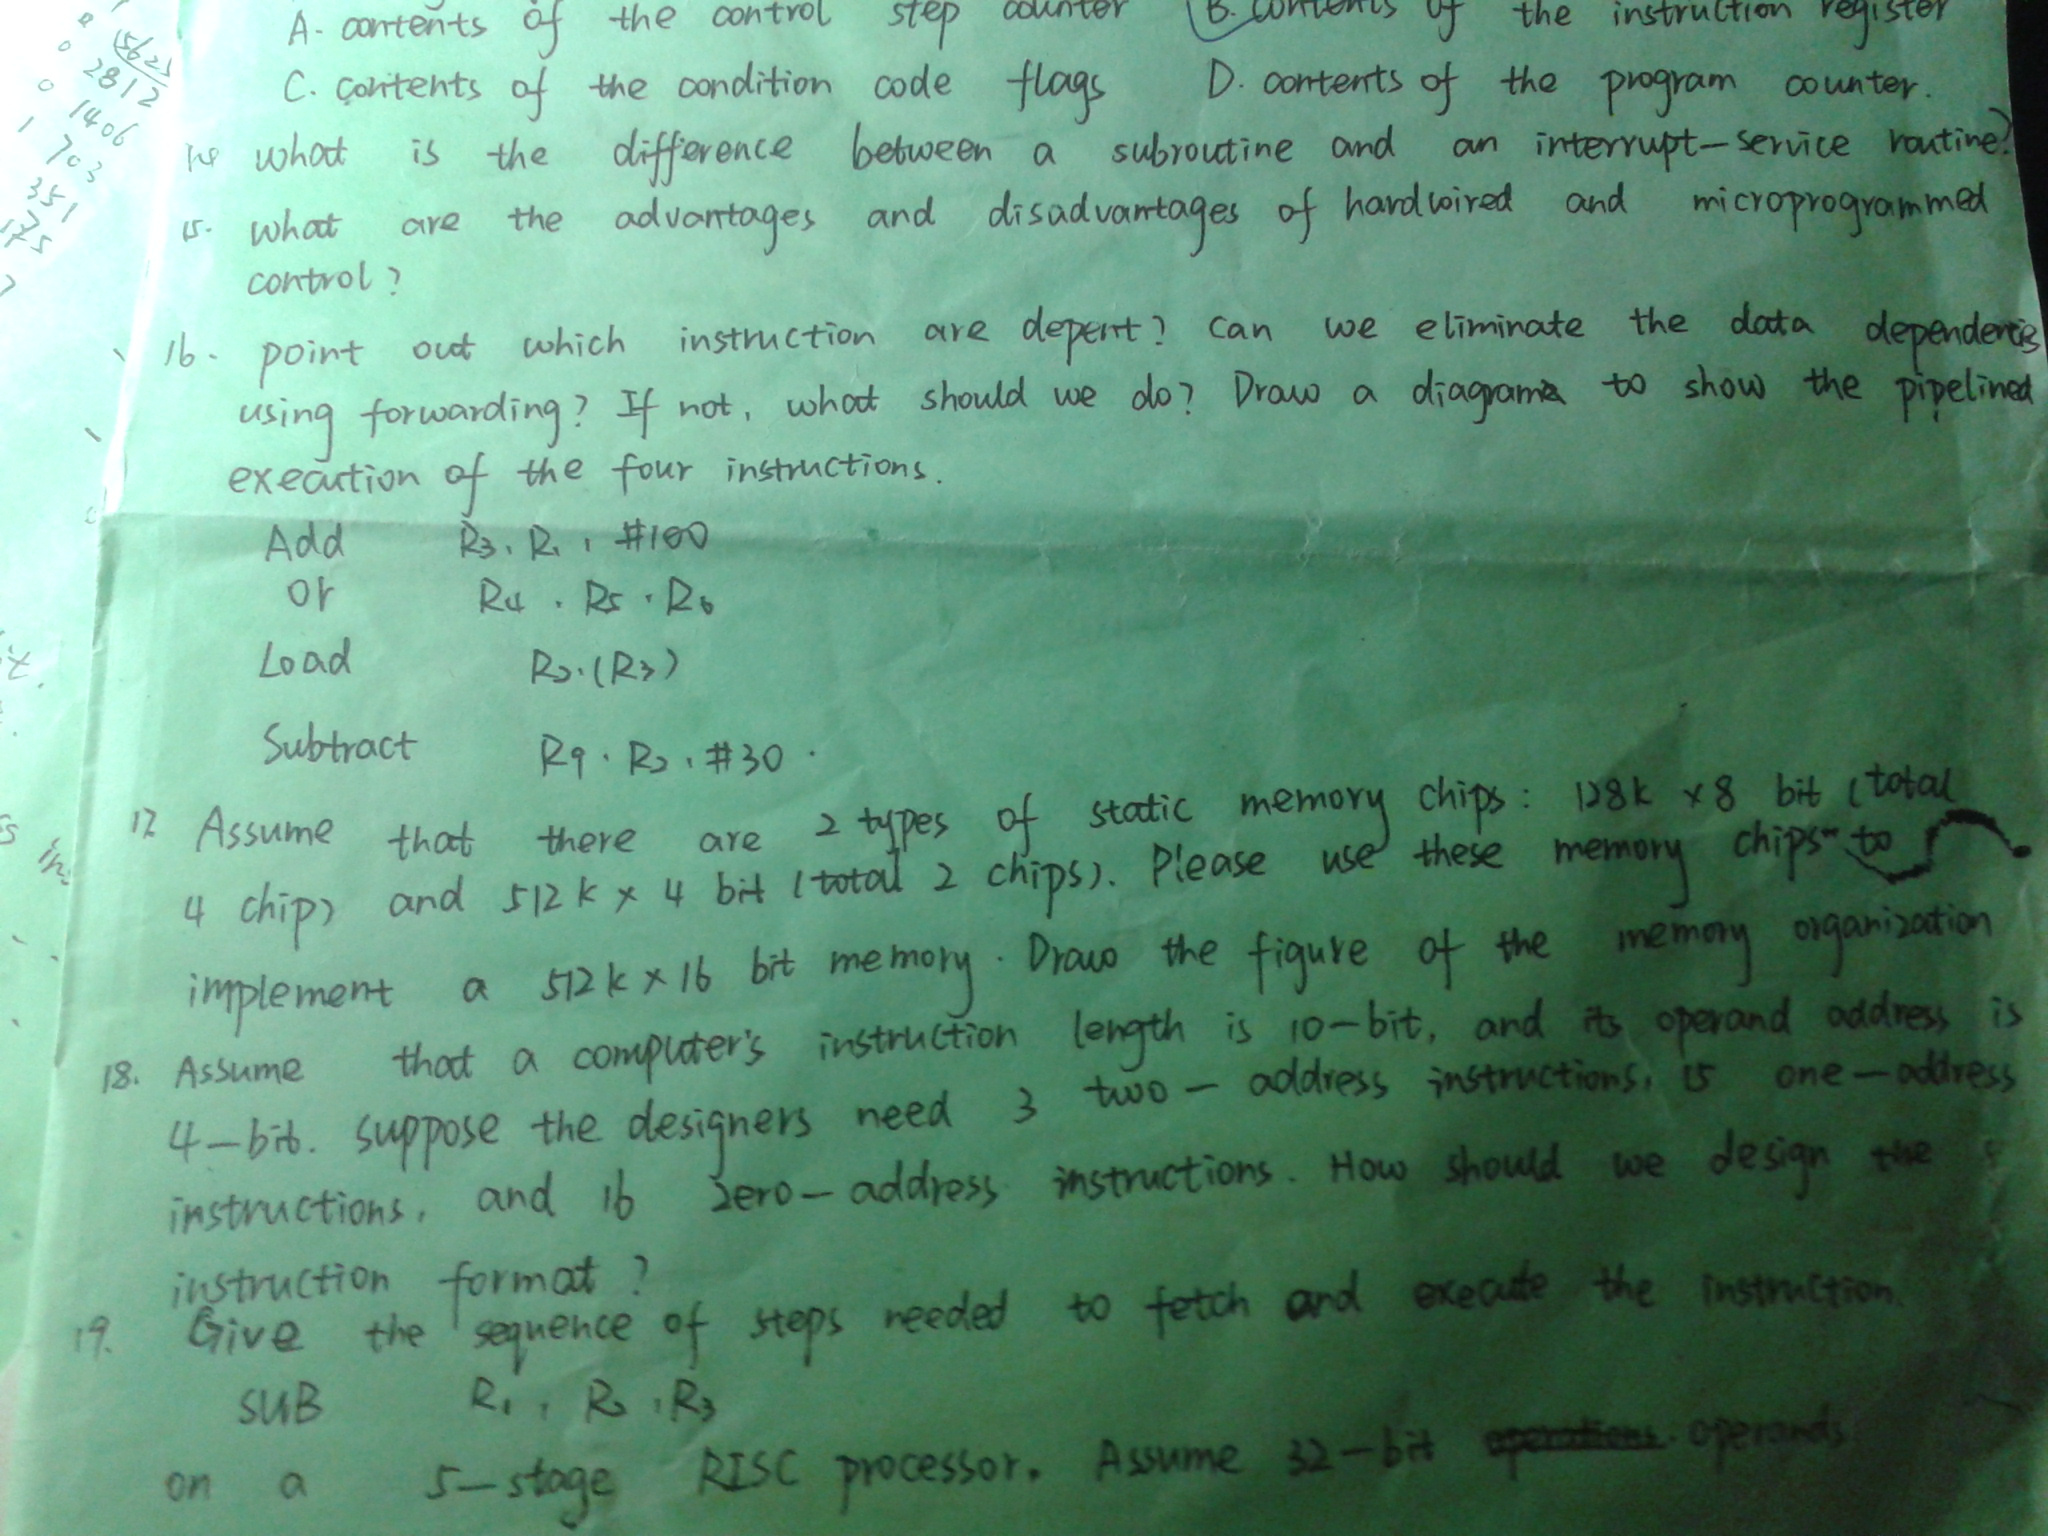 A. contents of the control step counter B. contents of the instruction register
C. contents of the condition code flags D. contents of the program counter.
14 what is the difference between a subroutine and an interrupt-service routine?
15. what are the advantages and disadvantages of hardwired and microprogrammed
control?
16. point out which instruction are depent? Can we eliminate the data dependencis
using forwarding? If not, what should we do? Draw a diagram to show the pipelined
execution of the four instructions.
Add R3, R1, #100
Or R4, R5, R6
Load R2, (R3)
Subtract R9, R2, #30.
17 Assume that there are 2 types of static memory chips: 128k x 8 bit (total
4 chips) and 512k x 4 bit (total 2 chips). Please use these memory chips to
implement a 512k x 16 bit memory. Draw the figure of the memory organization
18. Assume that a computer's instruction length is 10-bit, and its operand address is
4-bit. suppose the designers need 3 two-address instructions, 15 one-address
instructions, and 16 zero-address instructions. How should we design the
instruction format?
19. Give the sequence of steps needed to fetch and execute the instruction.
SUB R1, R2, R3
on a 5-stage RISC processor. Assume 32-bit operands
5625
0 2812
0 1406
1 703
351
175